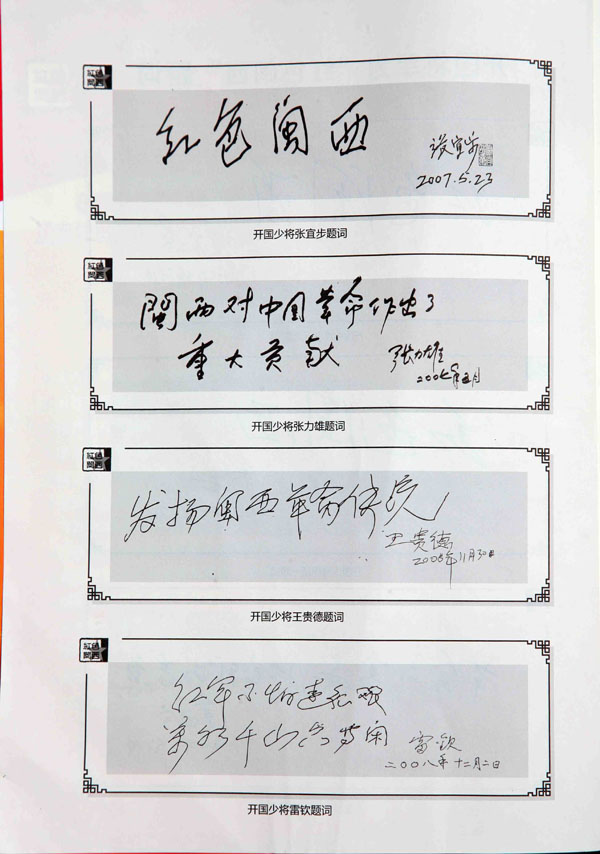 红色
闽西
红色闽西
张宜步
2007.5.23
开国少将张宜步题词
红色
闽西
闽西对中国革命作出了
重大贡献
张力雄
开国少将张力雄题词
红色
闽西
发扬闽西革命传统
王贵德
2008年11月30日
开国少将王贵德题词
红色
闽西
红军不怕远征难
万水千山只等闲
雷钦
二〇〇八年十二月二日
开国少将雷钦题词